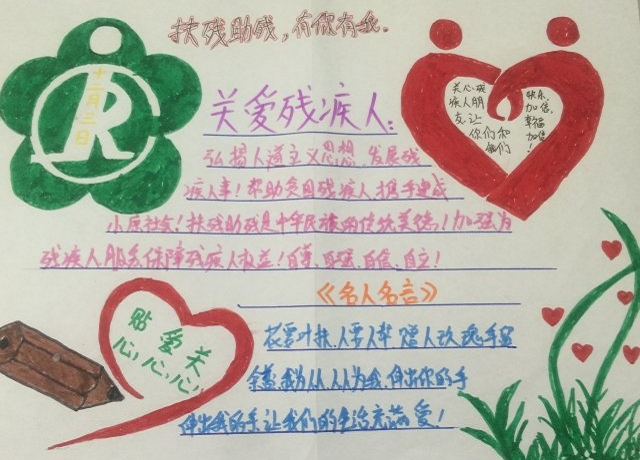 扶残助残，有你有我。
十二月三日
R
关爱残疾人：
弘扬人道主义思想，发展残
疾人事！帮助贫困残疾人，携手建成
小康社会！扶残助残是中华民族的传统美德！加强为
残疾人服务保障残疾人权益！自尊、自强、自信、自立！
关心残
疾人朋
友，让
你们和
我们
快乐
加倍，
幸福
加倍！
《名人名言》
花要叶扶，人要人帮，赠人玫瑰，手留
余香，我为人人，人人为我，伸出你的手
伸出我的手，让我们的生活充满爱！
贴 爱 关
心，心，心，